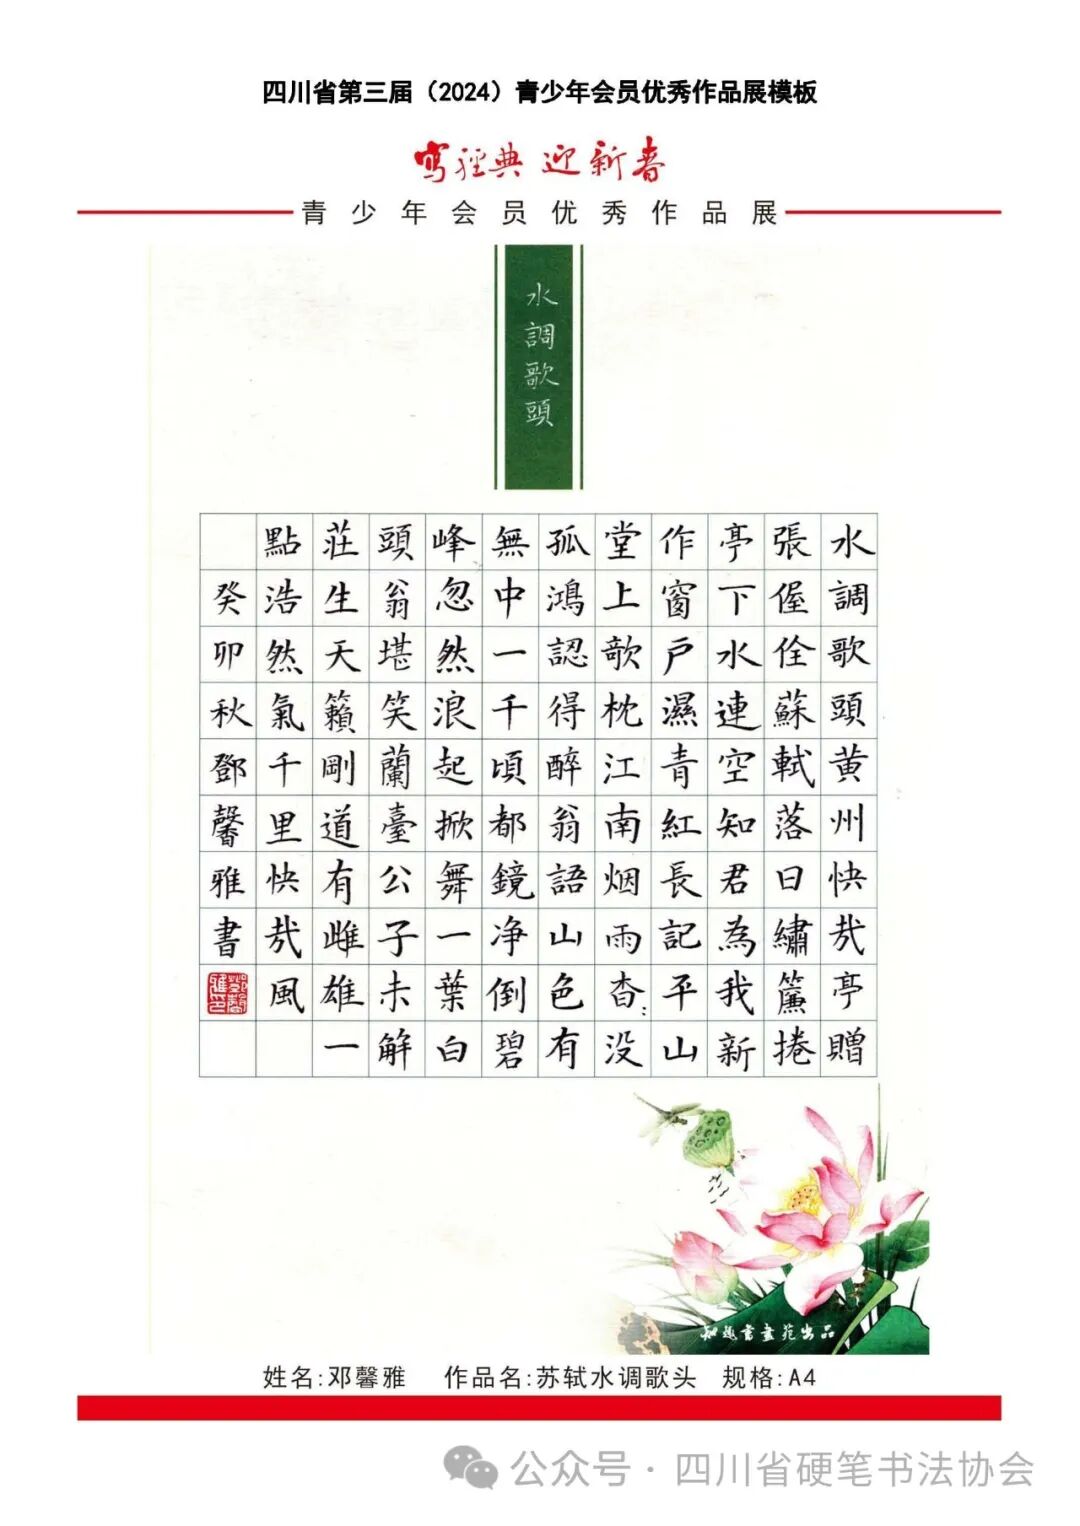 四川省第三届（2024）青少年会员优秀作品展模板
寫經典 迎新春
青少年会员优秀作品展
水調歌頭
水調歌頭黄州快哉亭贈
張偓佺蘇軾落日繡簾捲
亭下水連空知君為我新
作窗戶濕青紅長記平山
堂上欹枕江南烟雨杳:没
孤鴻認得醉翁語山色有
無中一千頃都鏡净倒碧
峰忽然浪起掀舞一葉白
頭翁堪笑蘭臺公子未解
莊生天籟剛道有雌雄一
點浩然氣千里快哉風
癸卯秋鄧馨雅書
鄧馨雅印
知趣書畫苑出品
姓名:邓馨雅 作品名:苏轼水调歌头 规格:A4
公众号·四川省硬笔书法协会